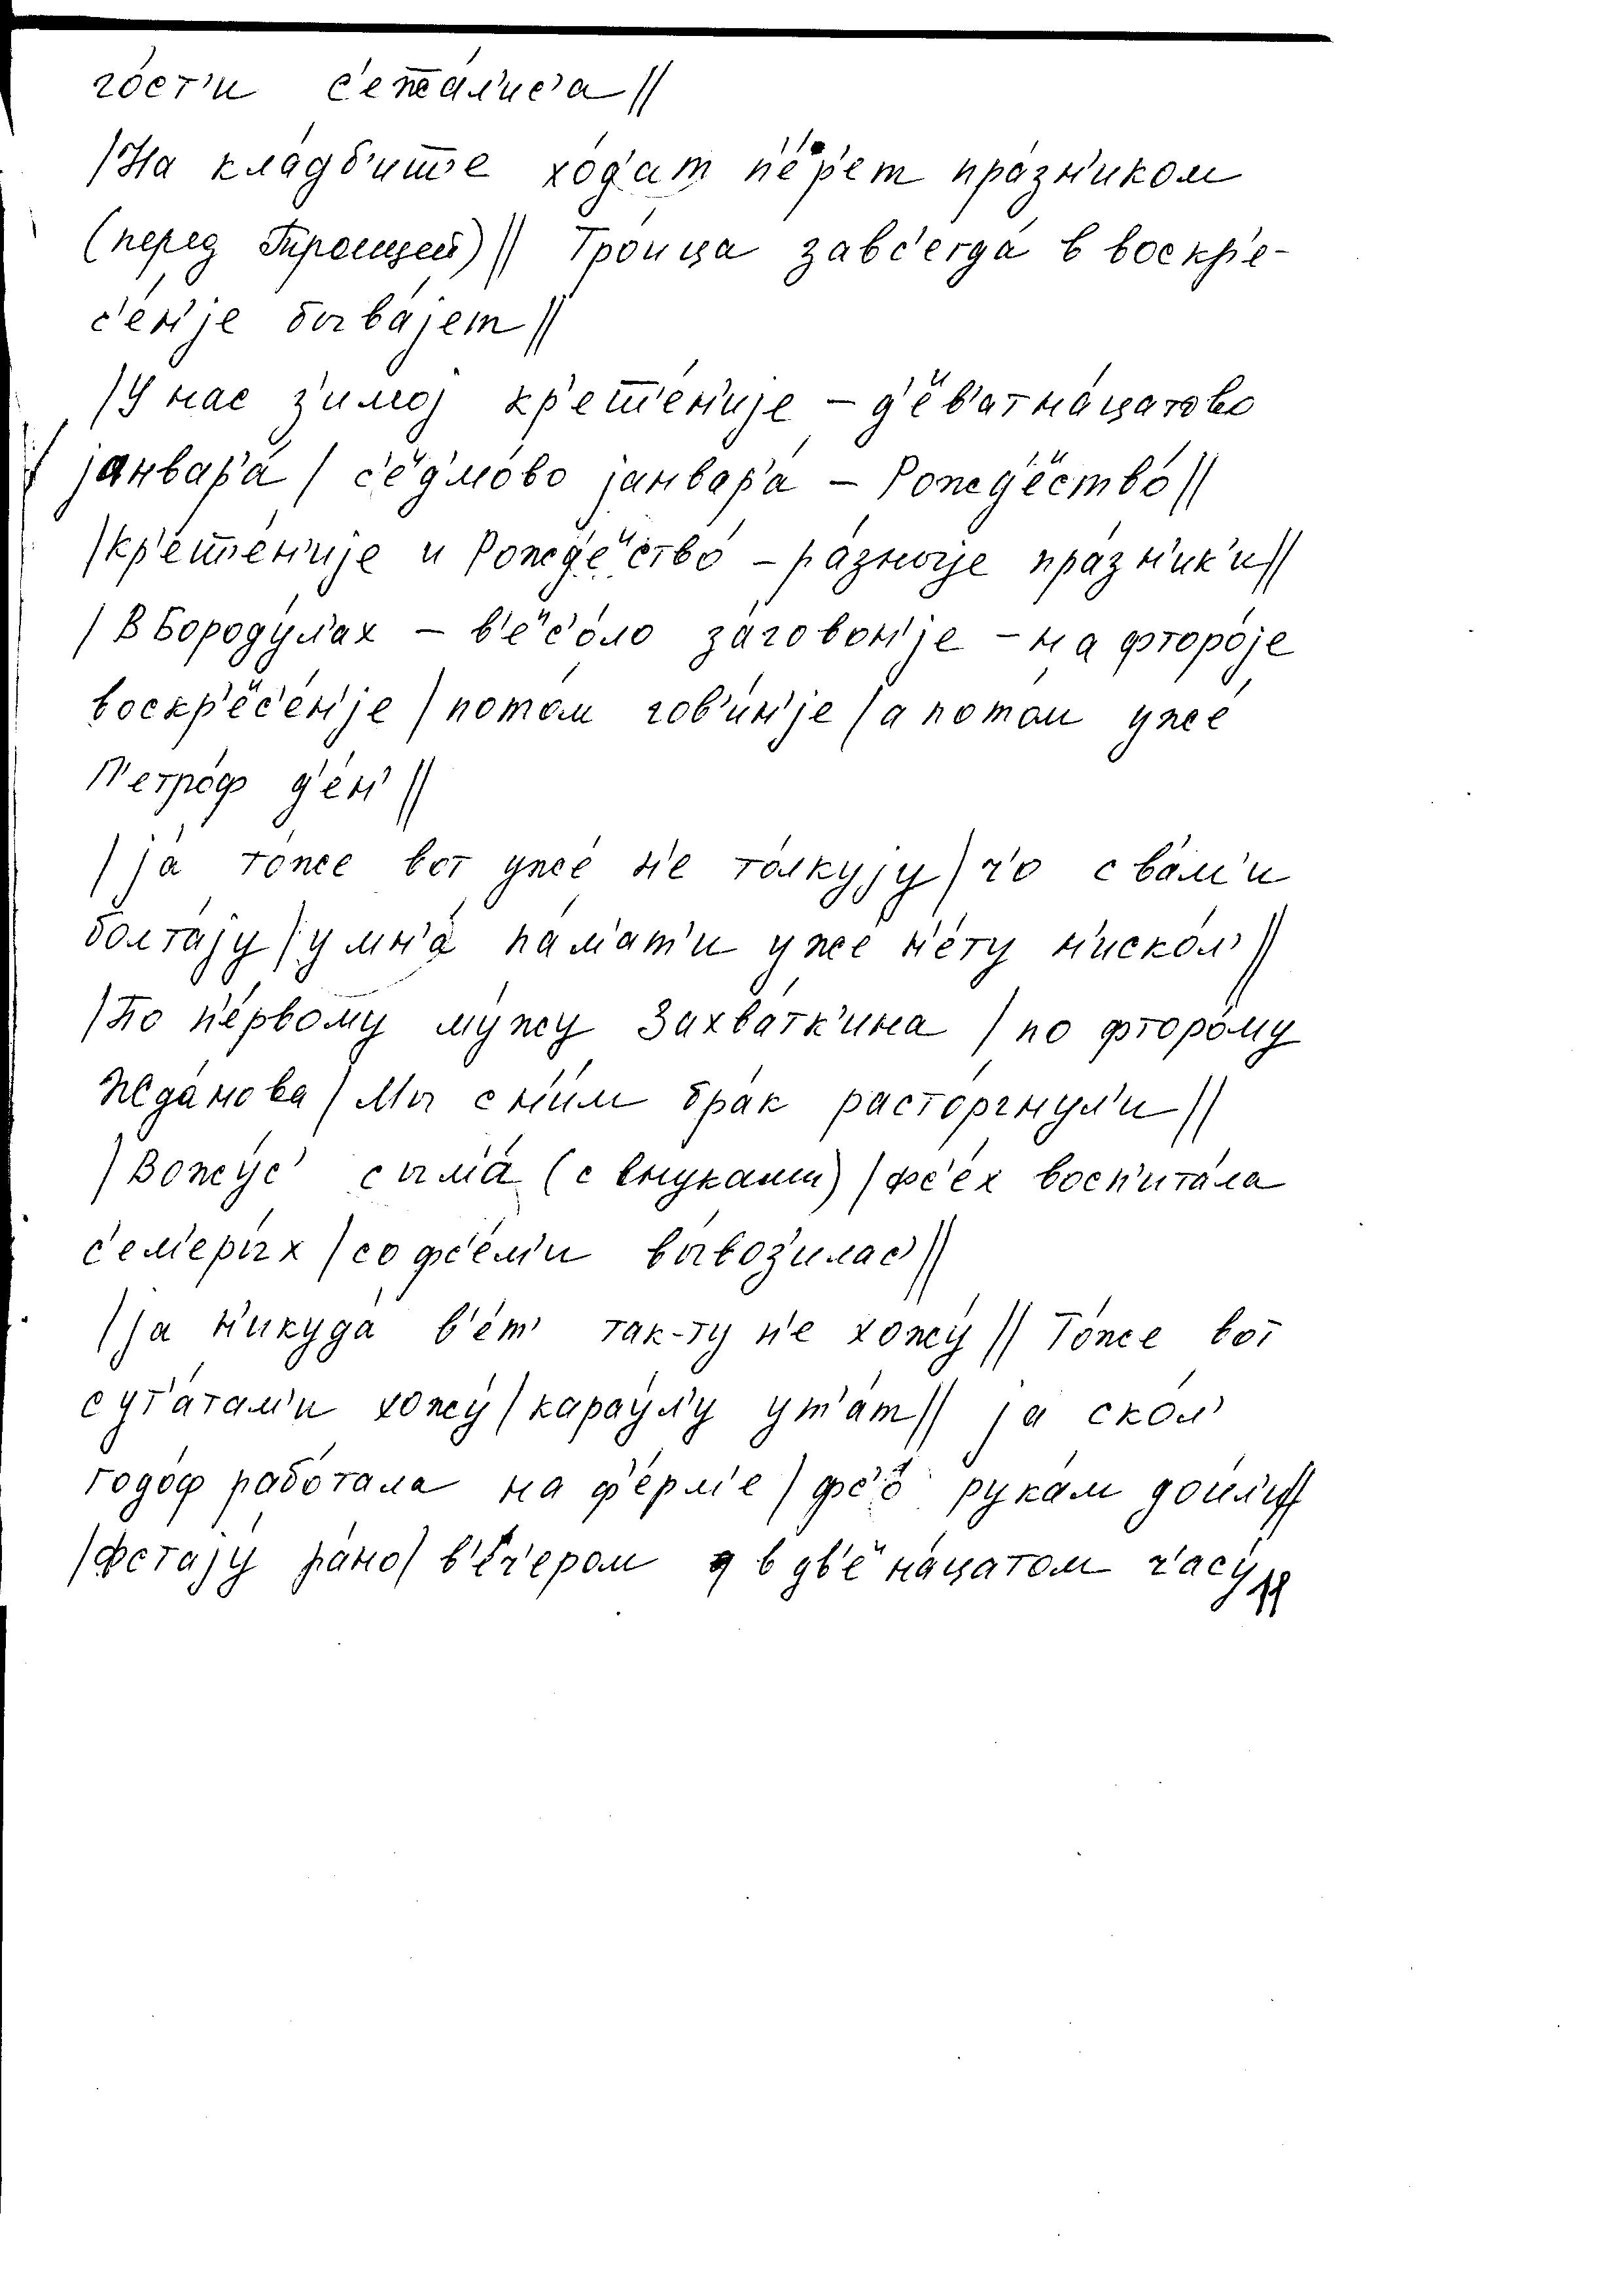 го́ст'и с'ежа́л'ис'а //
/ На кла́дб'иш̅'е хо́д'ат п'е́р'ет пра́зн'иком
(перед Троицей) // Тро́ица завс'егда́ в воскр'е-
с'е́н'jе быва́jет //
/ У нас з'имо́j кр'еш̅'е́н'иjе – д'еив'атна́цатово
jанвар'а́ / с'еид'мо́во jанвар'а́ – Рожд'еиство́ //
/ кр'еш̅'е́н'иjе и Рожд'еиство́ – ра́зныjе пра́зн'ик'и //
/ В Бороду́л'ах – в'еис'о́ло за́говон'jе – на фторо́jе
воскр'еис'е́н'jе / пото́м гов'и́н'jе / а пото́м уже́
П'етро́ф д'ен' //
/ jа́ то́же вот уже́ н'е толку́jу / ч'о с ва́м'и
болта́jу / у м'н'а́ па́м'ат'и уже́ н'е́ту н'иско́л' //
/ По п'е́рвому му́жу Захва́тк'ина / по фторо́му
Жда́нова / Мы с н'им бра́к расто́ргнул'и //
/ Вожу́с' сына́ (с внуками) / фс'е́х восп'ита́ла
с'ем'еры́х / со фс'е́м'и вы́воз'илас' //
/ jа н'икуда́ в'ет' так-ту н'е хожу́ // То́же вот
с ут'а́там'и хожу́ / карау́л'у ут'а́т // jа ско́л'
годо́ф рабо́тала на ф'е́рм'е / фс'о́ рука́м дои́л'и //
/ Фстаjу́ ра́но / в'е́ч'ером в дв'еина́цатом ч'асу́ //